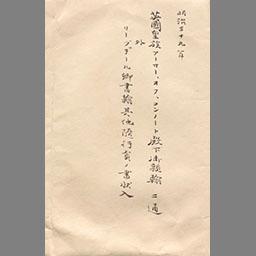 明治三十九年
英國皇族アーサー、オフ、コンノート殿下御親翰 二通
外
リーヅデール卿書翰其他随行員ノ書状入